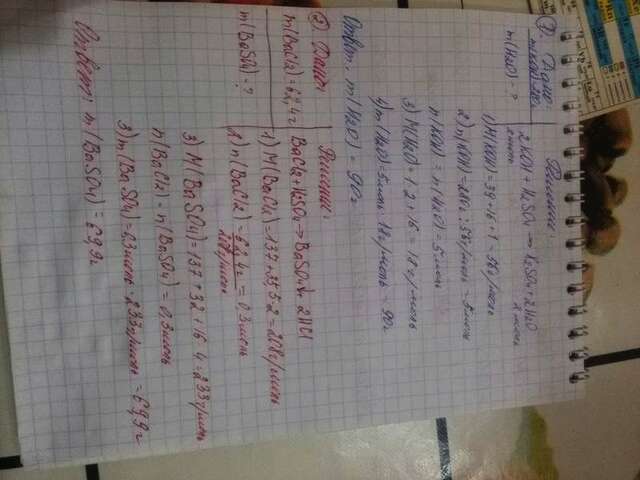 1. Дано:
m(KOH)=280г
m(H₂O) - ?
Решение:
2KOH + H₂SO₄ → K₂SO₄ + 2H₂O
2 моль
2 моль
1) M(KOH) = 39+16+1 = 56г/моль
2) n(KOH) = 280 : 56г/моль = 5моль
n(KOH) = n(H₂O) = 5 моль
3) M(H₂O) = 1·2+16 = 18г/моль
4) m(H₂O) = 5моль · 18г/моль = 90г
Ответ: m(H₂O) = 90г
2. Дано:
m(BaCl₂) = 62,4г
m(BaSO₄) - ?
Решение:
BaCl₂ + H₂SO₄ → BaSO₄↓ + 2HCl
1) M(BaCl₂) = 137+35,5·2 = 208г/моль
2) n(BaCl₂) = 62,4г / 208г/моль = 0,3моль
3) M(BaSO₄) = 137+32+16·4 = 233г/моль
n(BaCl₂) = n(BaSO₄) = 0,3моль
3) m(BaSO₄) = 0,3моль · 233г/моль = 69,9г
Ответ: m(BaSO₄) = 69,9г